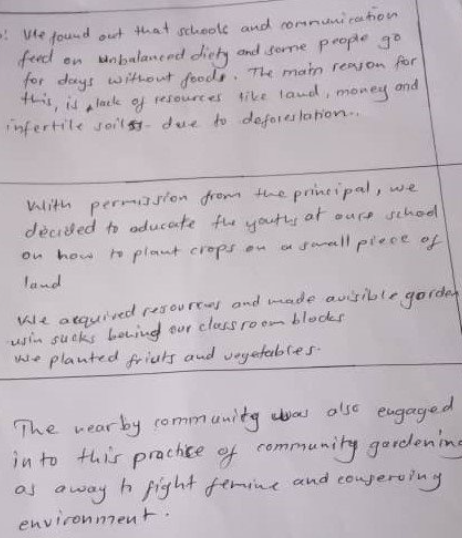 : We found out that schools and communication
feed on unbalanced diety and some people go
for days without foods. The main reason for
this, is lack of resources like land, money and
infertile soils - due to deforestation..
With permission from the principal, we
decided to educate the youths at ours school
on how to plant crops on a small piece of
land
We acquired resources and made avisible garden
usin sacks behind our classroom blocks
we planted friuts and vegetables.
The nearby community was also engaged
in to this practise of community gardening
as away to fight femine and conserving
environment.